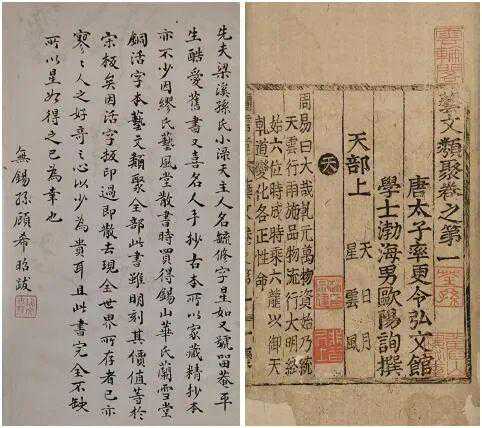 先夫梁溪孫氏小淥天主人名毓修字星如又號留菴平
生酷愛舊書又喜名人手抄古本所以家藏精抄本
亦不少因繆氏藝風堂散書時買得錫山華氏蘭雪堂
銅活字本藝文類聚全部此書雖明刻其價值等於
宋板矣因活字板印過即散去現全世界所存者已亦
寥〻人之好奇之心以少為貴耳且此書完全不缺
所以星如得之已為幸也
無錫孫顧希昭跋
藝文類聚卷之第一
唐太子率更令弘文館
學士渤海男歐陽詢撰
天部上 天 日 月
星 雲 風
天
周易曰大哉乾元萬物資始乃統
天雲行雨施品物流行大明終
始六位時成時乘六龍以御天
乾道變化各正性命